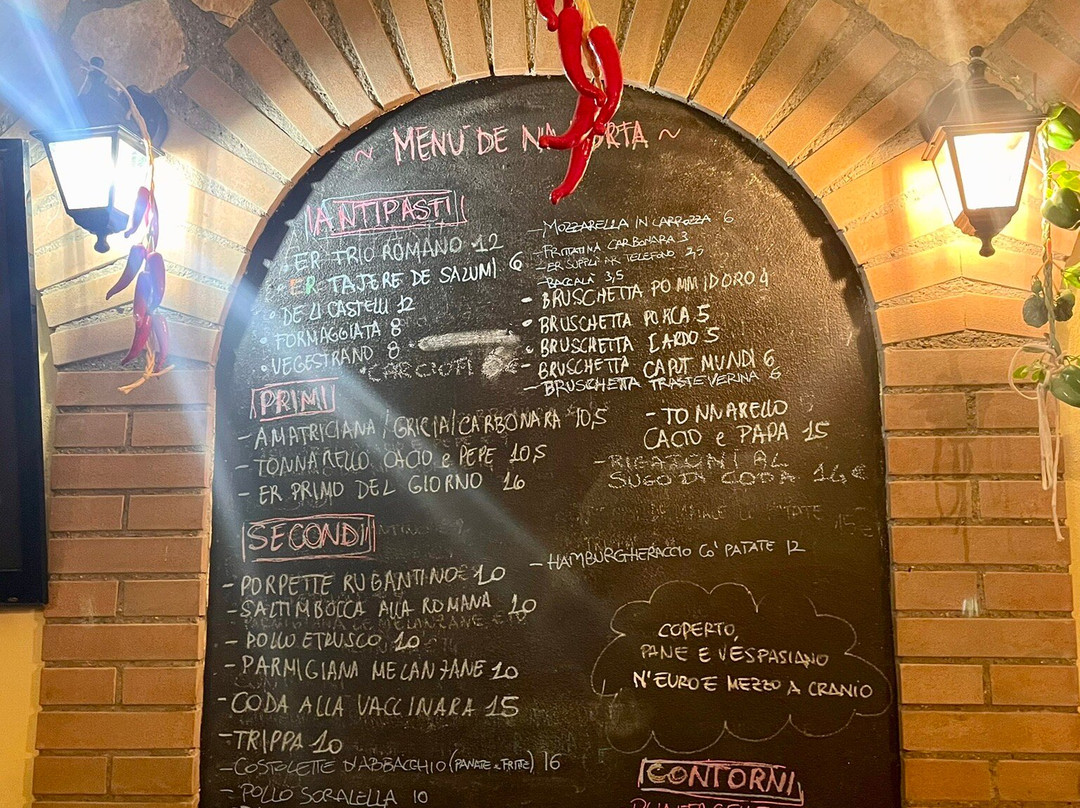 ~ MENÚ DE NA ORTA ~
ANTIPASTI
• ER FRIO ROMANO 12
• ER TAJERE DE SALUMI 6
• DE LI CASTELLI 12
• FORMAGGIATA 8
• VEGESTRANO 8
• CARCIOFI
- MOZZARELLA IN CARROZZA 6
- FRITTATINA CARBONARA 3
- ER SUPPLÌ AR TELEFONO 2,5
- BACCALÀ 3,5
- BRUSCHETTA POMMIDORO 4
• BRUSCHETTA PORCA 5
• BRUSCHETTA LARDO 5
- BRUSCHETTA CAPUT MUNDI 6
- BRUSCHETTA TRASTEVERINA 6
PRIMI
- AMATRICIANA/GRICIA/CARBONARA 10,5
- TONNARELLO CACIO e PEPE 10,5
- ER PRIMO DEL GIORNO 16
- TONNARELLO
CACIO e PAPA 15
- RIGATONI AL
SUGO DI CODA 14€
SECONDI
- PORPETTE RUGANTINO 10
- SALTIMBOCCA ALLA ROMANA 10
- POLLO ETRUSCO 10
- PARMIGIANA MELANZANE 10
- CODA ALLA VACCINARA 15
- TRIPPA 10
- COSTOLETTE D'ABBACCHIO (PANATE e FRITTE) 16
- POLLO SORALELLA 10
- HAMBURGHERACCIO CO' PATATE 12
COPERTO,
PANE E VESPASIANO
N'EURO E MEZZO A CRANIO
CONTORNI